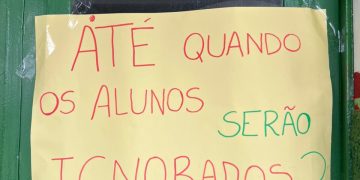 ATÉ QUANDO
OS ALUNOS
SERÃO
IGNORADOS?